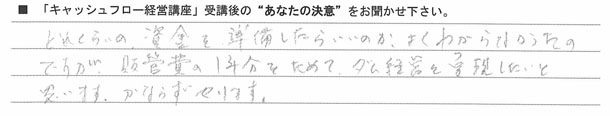 ■ 「キャッシュフロー経営講座」受講後の“あなたの決意”をお聞かせ下さい。
どれくらいの、資金を準備したらいいのか、よくわからなかったの
ですが、販管費の1年分をためて、ダム経営を実現したいと
思います。かならずやります。